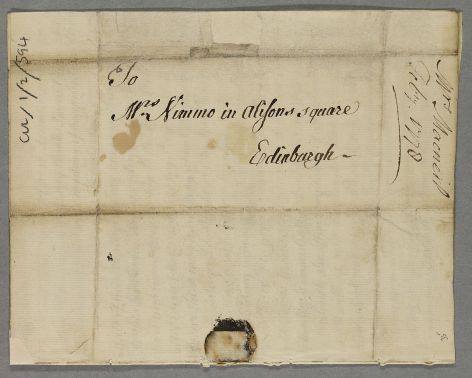 To
Mrs. Nimmo in Alisons square
Edinbargh
Mrs Macneil
Feby 1778